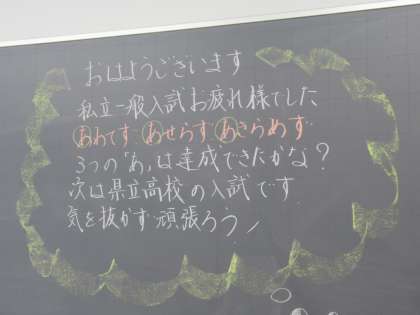 おはようございます
私立一般入試お疲れ様でした
あわてず あせらず あきらめず
3つの「あ」は達成できたかな?
次は県立高校の入試です
気を抜かず頑張ろう!